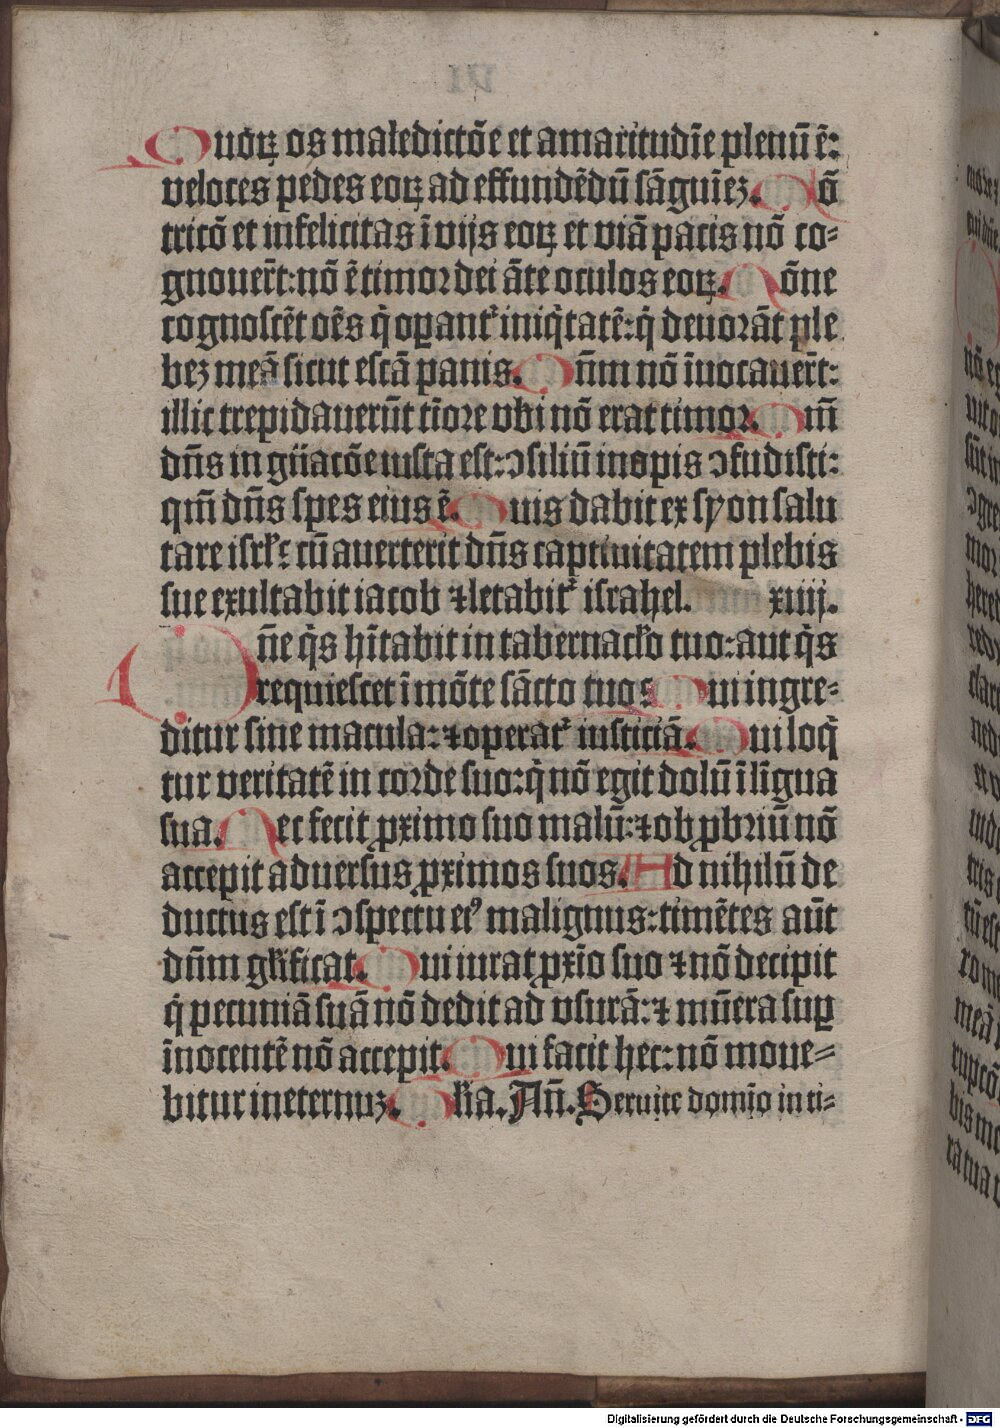 Quoꝝ os maledictōe et amaritudīe plenū ē:
veloces pedes eoꝝ ad effundēdū sāguīeꝫ. Cō
tricō et infelicitas ī vijs eoꝝ et viā pacis nō co-
gnouer̄t: nō ē timor dei āte oculos eoꝝ. Nōne
cognoscēt oēs q̇ oꝑant᷑ iniq̇tatē: q̇ deuorāt ple
beꝫ meā sicut escā panis. Dn̄m nō īuocauer̄t:
illic trepidauerūt tīore vbi nō erat timor. Qm̄
dn̄s in gn̄acōe iusta est: ꝯsiliū inopis ꝯfudisti:
qm̄ dn̄s spes eius ē. Quis dabit ex syon salu
tare isrl᷑: cū auerterit dn̄s captiuitatem plebis
sue exultabit iacob ⁊ letabit᷑ israhel. xiiij.
Dn̄e q̇s hītabit in tabernacl̄o tuo: aut q̇s
requiescet ī mōte sācto tuo: Qui ingre-
ditur sine macula: ⁊ operat᷑ iusticiā. Qui loq̇
tur veritatē in corde suo: q̇ nō egit dolū ī līgua
sua. Nec fecit ꝓximo suo malū: ⁊ obꝓbriū nō
accepit aduersus ꝓximos suos. Ad nihilū de
ductus est ī ꝯspectu eiꝰ malignus: timētes aūt
dn̄m gl̄ificat. Qui iurat ꝓxīo suo ⁊ nō decipit
q̇ pecuniā suā nō dedit ad vsurā: ⁊ mūera suꝑ
īnocentē nō accepit. Qui facit hec: nō moue-
bitur ineternuꝫ. Gl̄ia. An̄. Seruite domīo in ti-
mo
VI
nō et
vit o
sūt in
ꝯgre
mor
here
redi
clar
tris
tū est
rome
meā
rupcō
bis me
ra tua
Digitalisierung gefördert durch die Deutsche Forschungsgemeinschaft - DFG